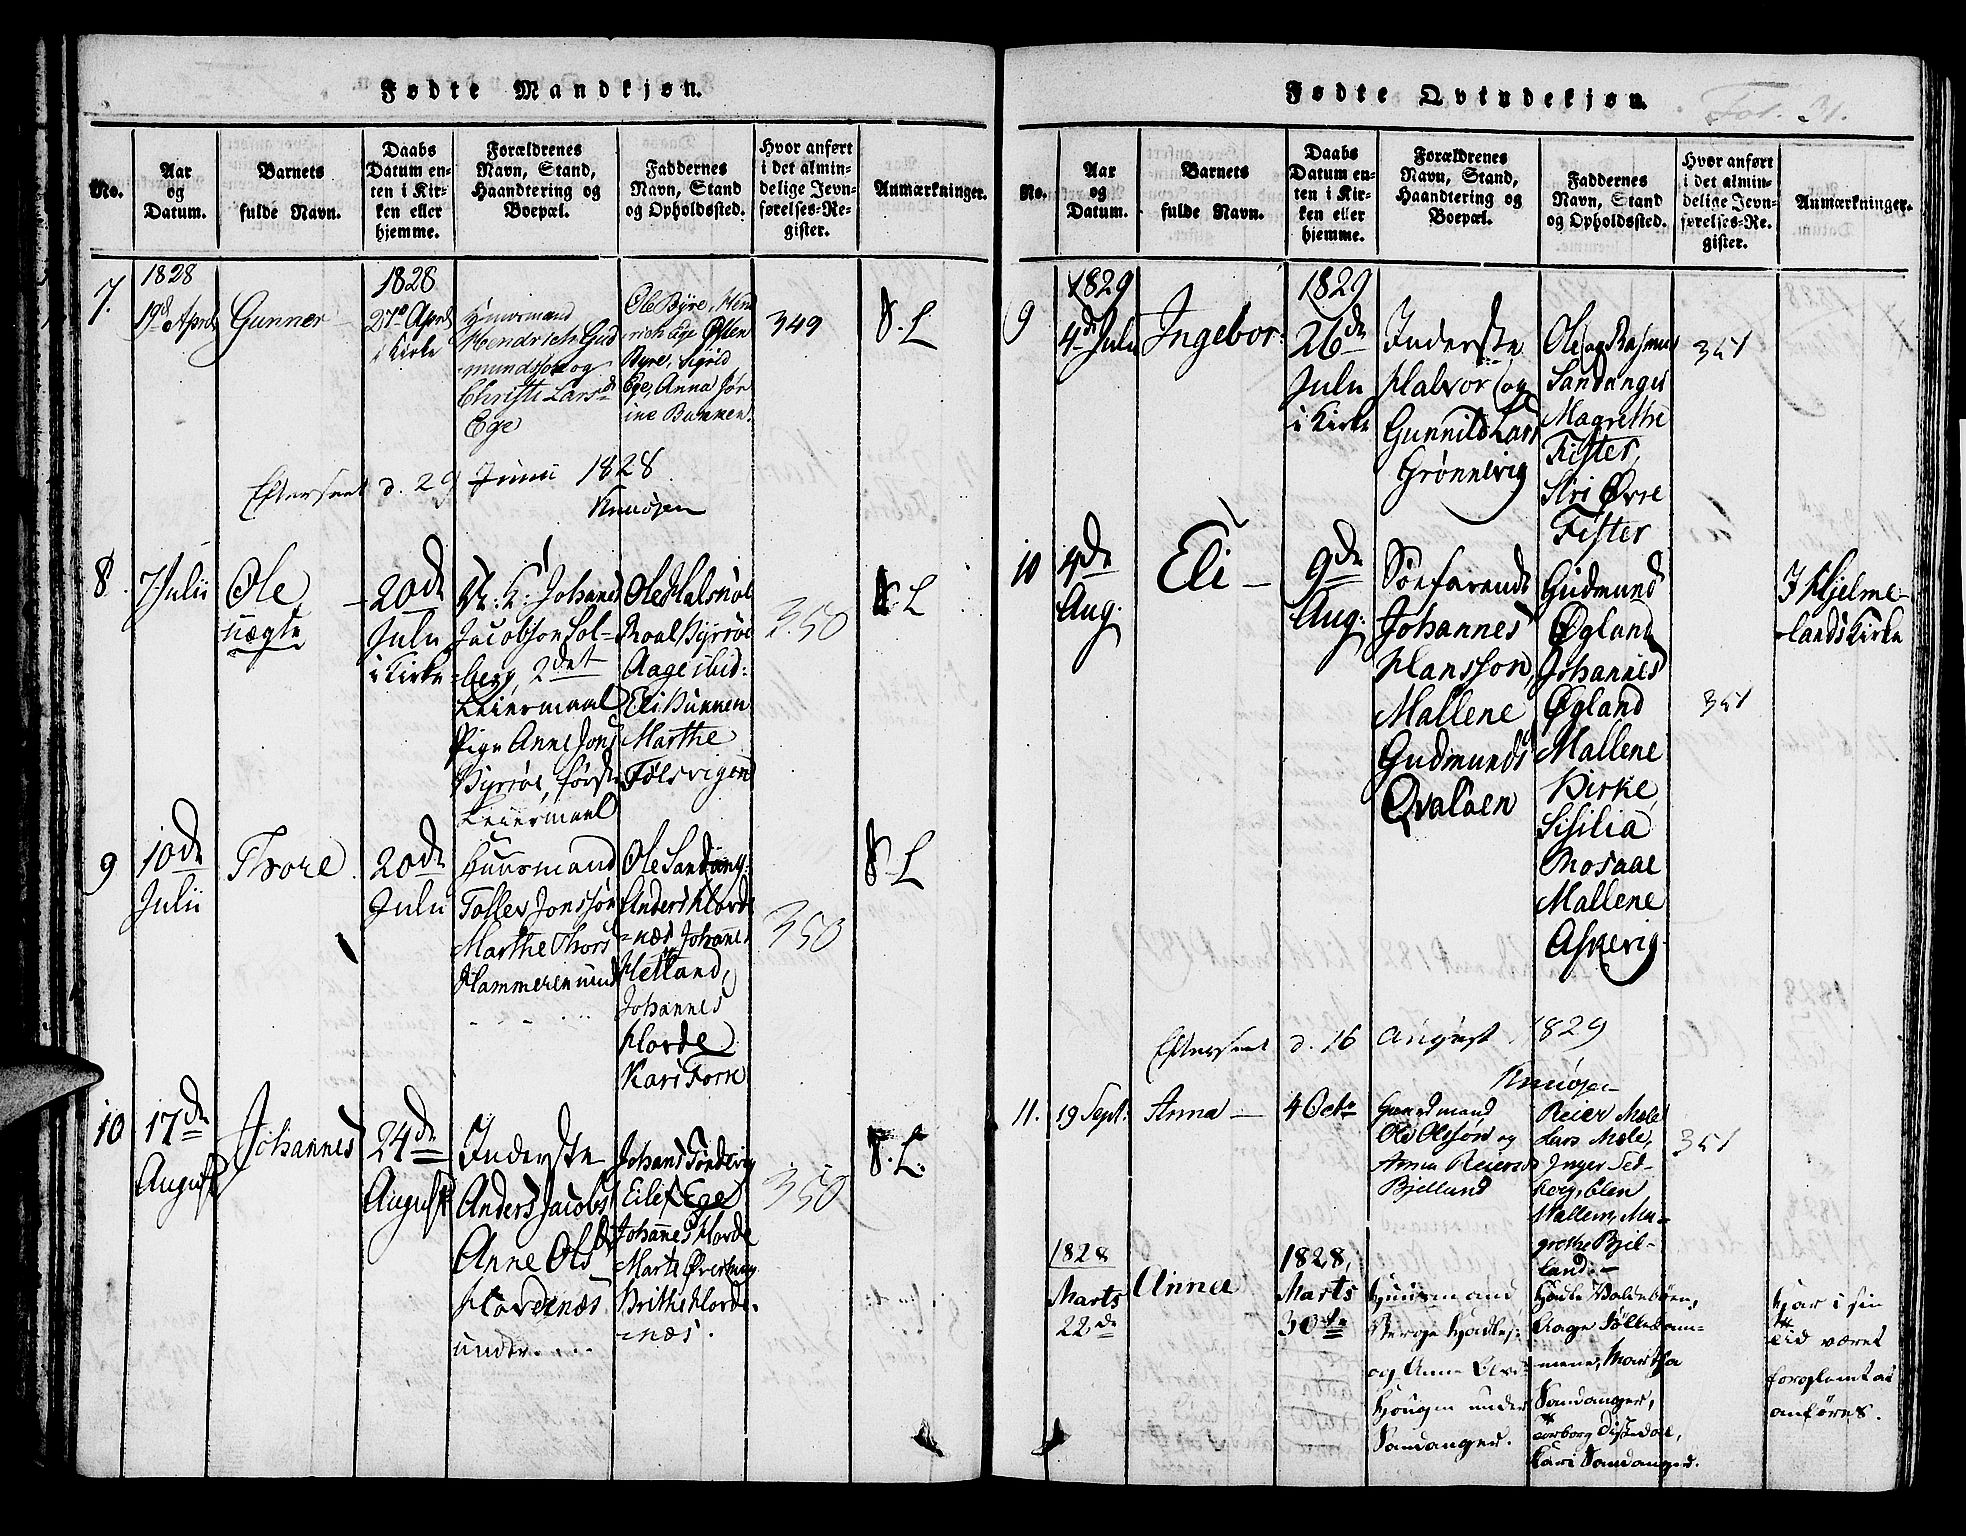 Fødte Mandkjøn.
No.
Aar
og
Datum.
Barnets
fulde Navn.
Daabs
Datum en-
ten i Kir-
ken eller
hjemme.
Forældrenes
Navn, Stand,
Haandtering og
Boepæl.
Faddernes
Navn, Stand
og Opholdssted.
Hvor anført
i det almin-
delige Jevn-
førelses-Re-
gister.
Anmærkninger.
7.
1828
19d April
Gunner
1828
27de April
i Kirke
Huusmand
Hendrich Gud
mundsøn og
Christi Larsd
Ege
Ole Byre, Hend
rich Ege Østen
Byre, Sigrid
Ege, Anna Jør
ine Bunnen.
349
S. L
Efterseet d. 29 Junii 1828
Knudsen
8.
7 Julii
Ole
uægte
20de
Julii
i Kirke
U: K: Johanes
Jacobson Sol-
berg, 2det
Leiermaal
Pige Anne Jons
Byrröe, første
Leiermaal
Ole Halsnöe
Roal Byrröe
Aage ibid:
Eli Bunnen
Marthe
Følsvigen
350
S. L
9
10de
Julii
Thore
20de
Julii
Huusmand
Tolles Jonsson
Marthe Thors
Hammeren und
Ole Sandang:
Anders Horde
=næs Johannes
Hetland,
Johannes
Horde
Kari Torn
350
S. L
10
17de
August
Johannes
24de
August
Inderste
Anders Jacobs
Anne Olsd
Hordenæs
under....
Johans Söndevig
Eilef Ege
Johannes Horde
Marte
Brithe Horde-
=næs.
350
S. L.
Fødte Qvindekjøn.
Fol. 31.
No.
Aar
og
Datum.
Barnets
fulde Navn.
Daabs
Datum en-
ten i Kir-
ken eller
hjemme.
Forældrenes
Navn, Stand,
Haandtering og
Boepæl.
Faddernes
Navn, Stand
og Opholdssted.
Hvor anført
i det almin-
delige Jevn-
førelses-Re-
gister.
Anmærkninger.
9
1829
4de Juli
Ingebor:
1829
26de
Julii
i Kirke
Inderste
Halvor og
Gunnild Lars
Grönnevig
Ole og Rasmus
Sandanger
Magrethe
Fister,
Siri Øvre
Fister
351
10
4de
Aug.
Eli
9de
Aug:
Söefarende
Johannes
Hansson,
Mallene
Gudmunds
Qvaløen
Gudmund
Øgland
Johannes
Øgland
Mallene
Birke,
Sisilia
Mosaae
Mallene
Askevig
351
I Hjelme-
landsKirke
Efterseet d. 16 August 1829
Knudsen
11.
19 Sept:
Anna
4 Octr
Gaardmand
Ole Olssøn og
Anna Reiersd
Bjelland
Reier Mæle
Lars Mæle,
Inger Sed-
berg, Elen
Wallem, Ma-
grethe Bjel-
land.-
351
1828
Marts
22de
Anna
1828,
Marts
30te
Huusmand
Børge
og Anna
Hougen under
Sandanger.
Aage
mene, Martha
Sandanger,
Kari Sandanger.
Har i sin
Tid været
forglemt at
anføres.